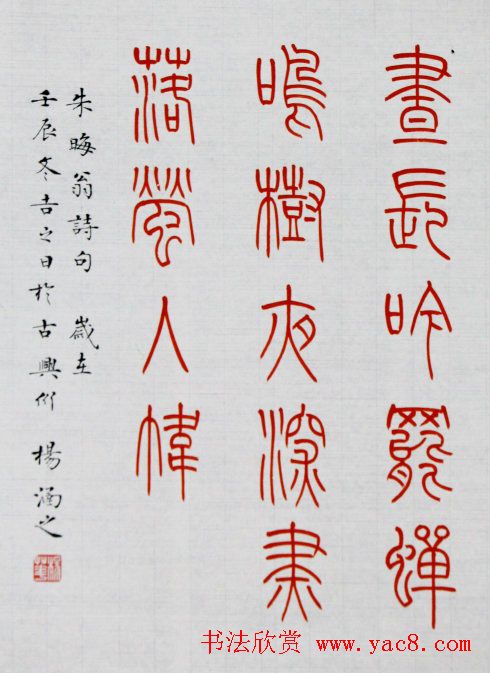 晝長吟罷蟬
鳴樹夜深燼
落螢入幃
朱晦翁詩句 歲在
壬辰冬吉之日於古興州 楊涵之
书法欣赏 www.yac8.com